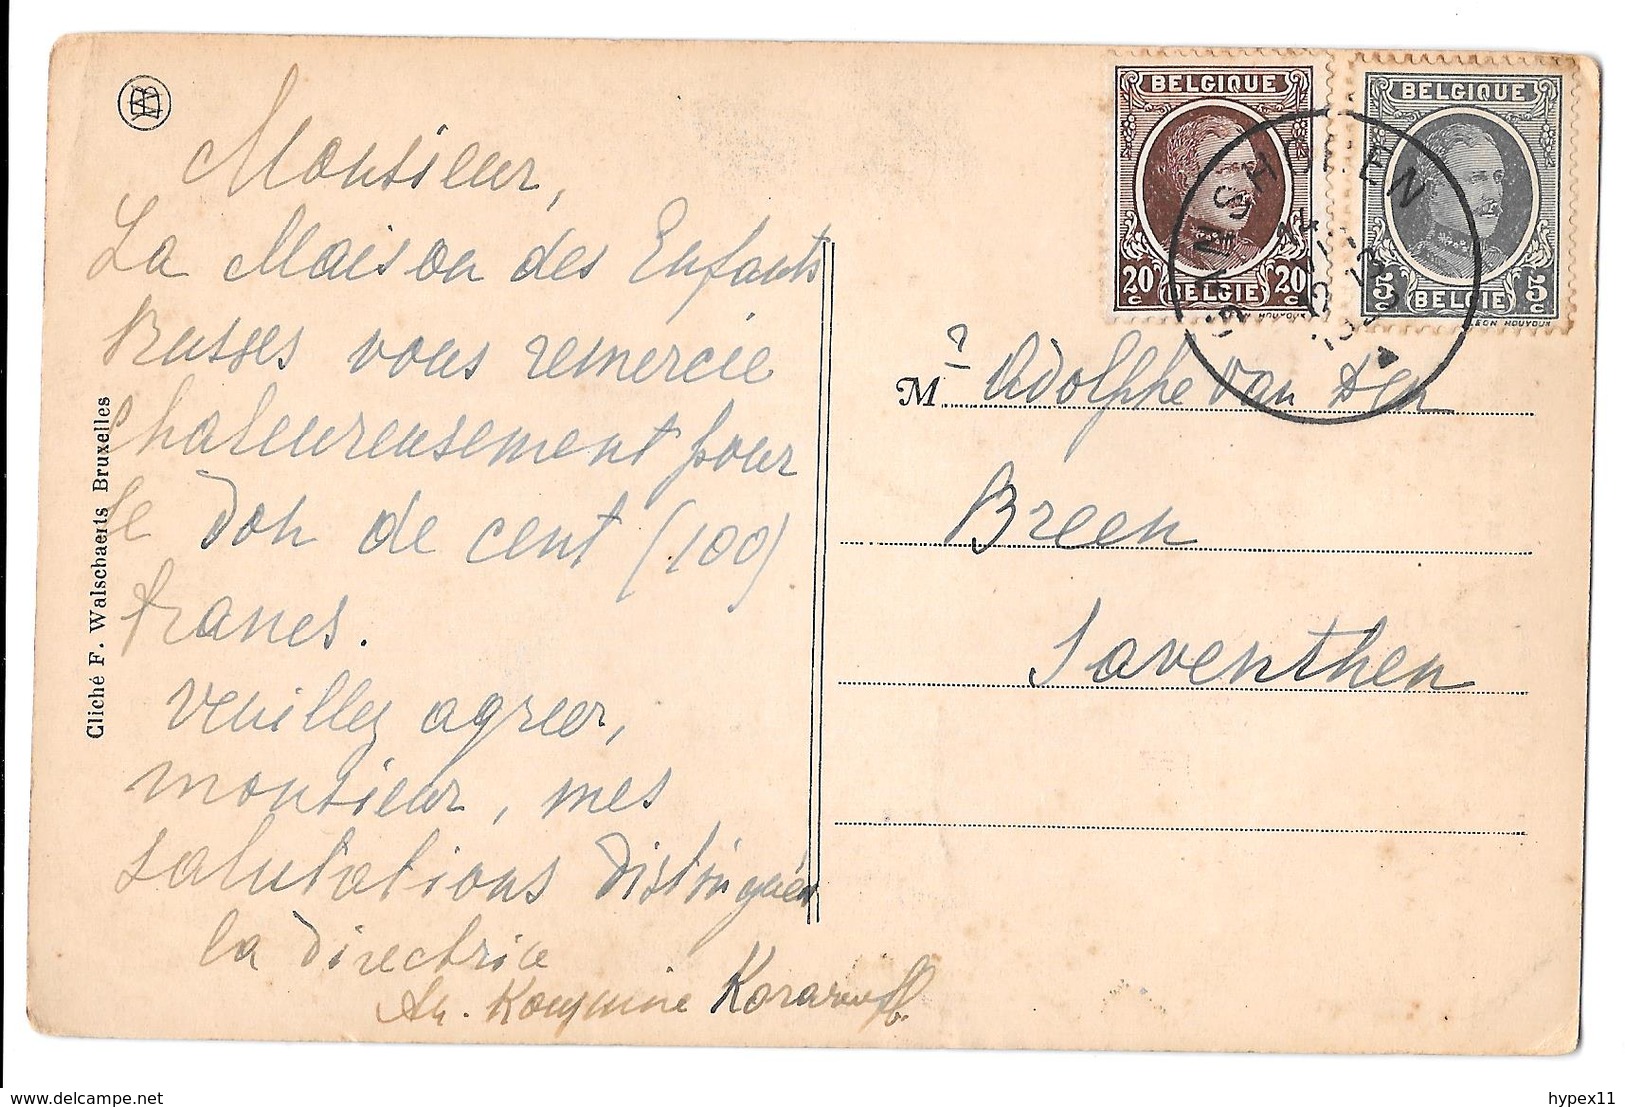 Monsieur,
La Maison des Enfants
Russes vous remercie
chaleureusement pour
le don de cent (100)
francs.
Veuillez agreer,
monsieur, mes
salutations distinguées
la directrice
An. Kouzmine
Cliché F. Walschaerts Bruxelles
BELGIQUE
20c 20c
BELGIE
BELGIQUE
5c 5c
BELGIE
LEON HOUYOUX
GANSHOREN
M r Adolphe van den
Breen
Saventhem
delcampe.net
hypex11